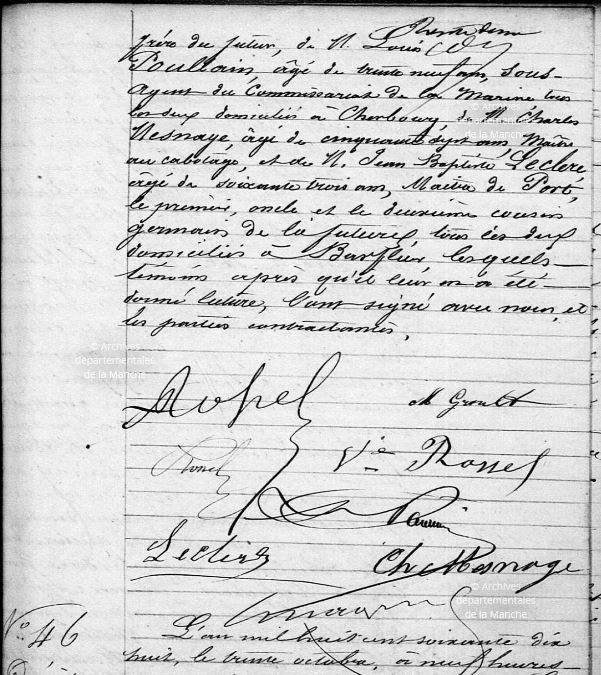 frère du futur, de M. Louis
Poullain, âgé de trente neuf ans, sous-
agent du Commissariat de la Marine tous
les deux domiciliés à Cherbourg, de M. Charles
Mesnage, âgé de cinquante sept ans, Maître
au cabotage, et de M. Jean Baptiste Leclerc,
âgé de soixante trois ans, Maître de Port,
le premier, oncle et le deuxième cousin
germain de la future, tous les deux
domiciliés à Barfleur lesquels
témoins après qu'il leur en a été
donné lecture, l'ont signé avec nous, et
les parties contractantes.
© Archives
départementales
de la Manche
© Archives
départementales
de la Manche
M Groult
Rossel
Vve Rossel
Leclerc
Ch Mesnage
© Archives
départementales
de la Manche
No 46
L'an mil huit cent soixante dix
huit, le trente octobre, à neuf heures